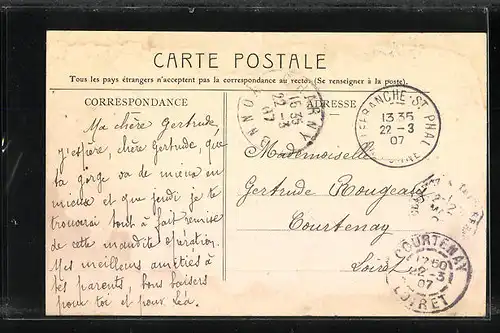 CARTE POSTALE
Tous les pays étrangers n'acceptent pas la correspondance au recto. (Se renseigner à la poste).
CORRESPONDANCE
ADRESSE
Ma chère Gertrude,
J'espère, chère Gertrude, que
ta gorge va de mieux en
mieux et que jeudi je te
trouverai tout à fait remise
de cette maudite opération.
Mes meilleurs amitiés à
tes parents, bons baisers
pour toi et pour Léa.
Mademoiselle
Gertrude Rougeale
Courtenay
Loiret
16 35
22 - 3
07
YONNE
VILLEFRANCHE-ST-PHAL
13 35
22 - 3
07
YONNE
COURTENAY
17 50
22 - 3
07
LOIRET